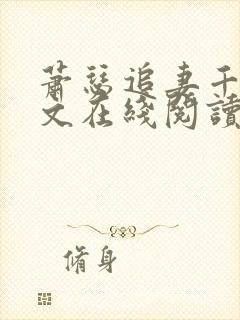 萧瑟追妻千
文在线阅读
脩身